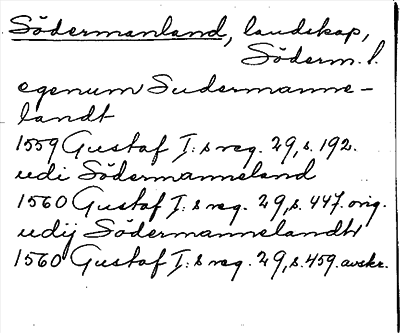 Södermanland, landskap,
Söderm. l.
egenum Sudermanne-
landt
1559 Gustaf I:s reg. 29, s. 192.
udi Södermanneland
1560 Gustaf I:s reg. 29, s. 447. orig.
udij Södermannelandh
1560 Gustaf I:s reg. 29, s. 459. avskr.